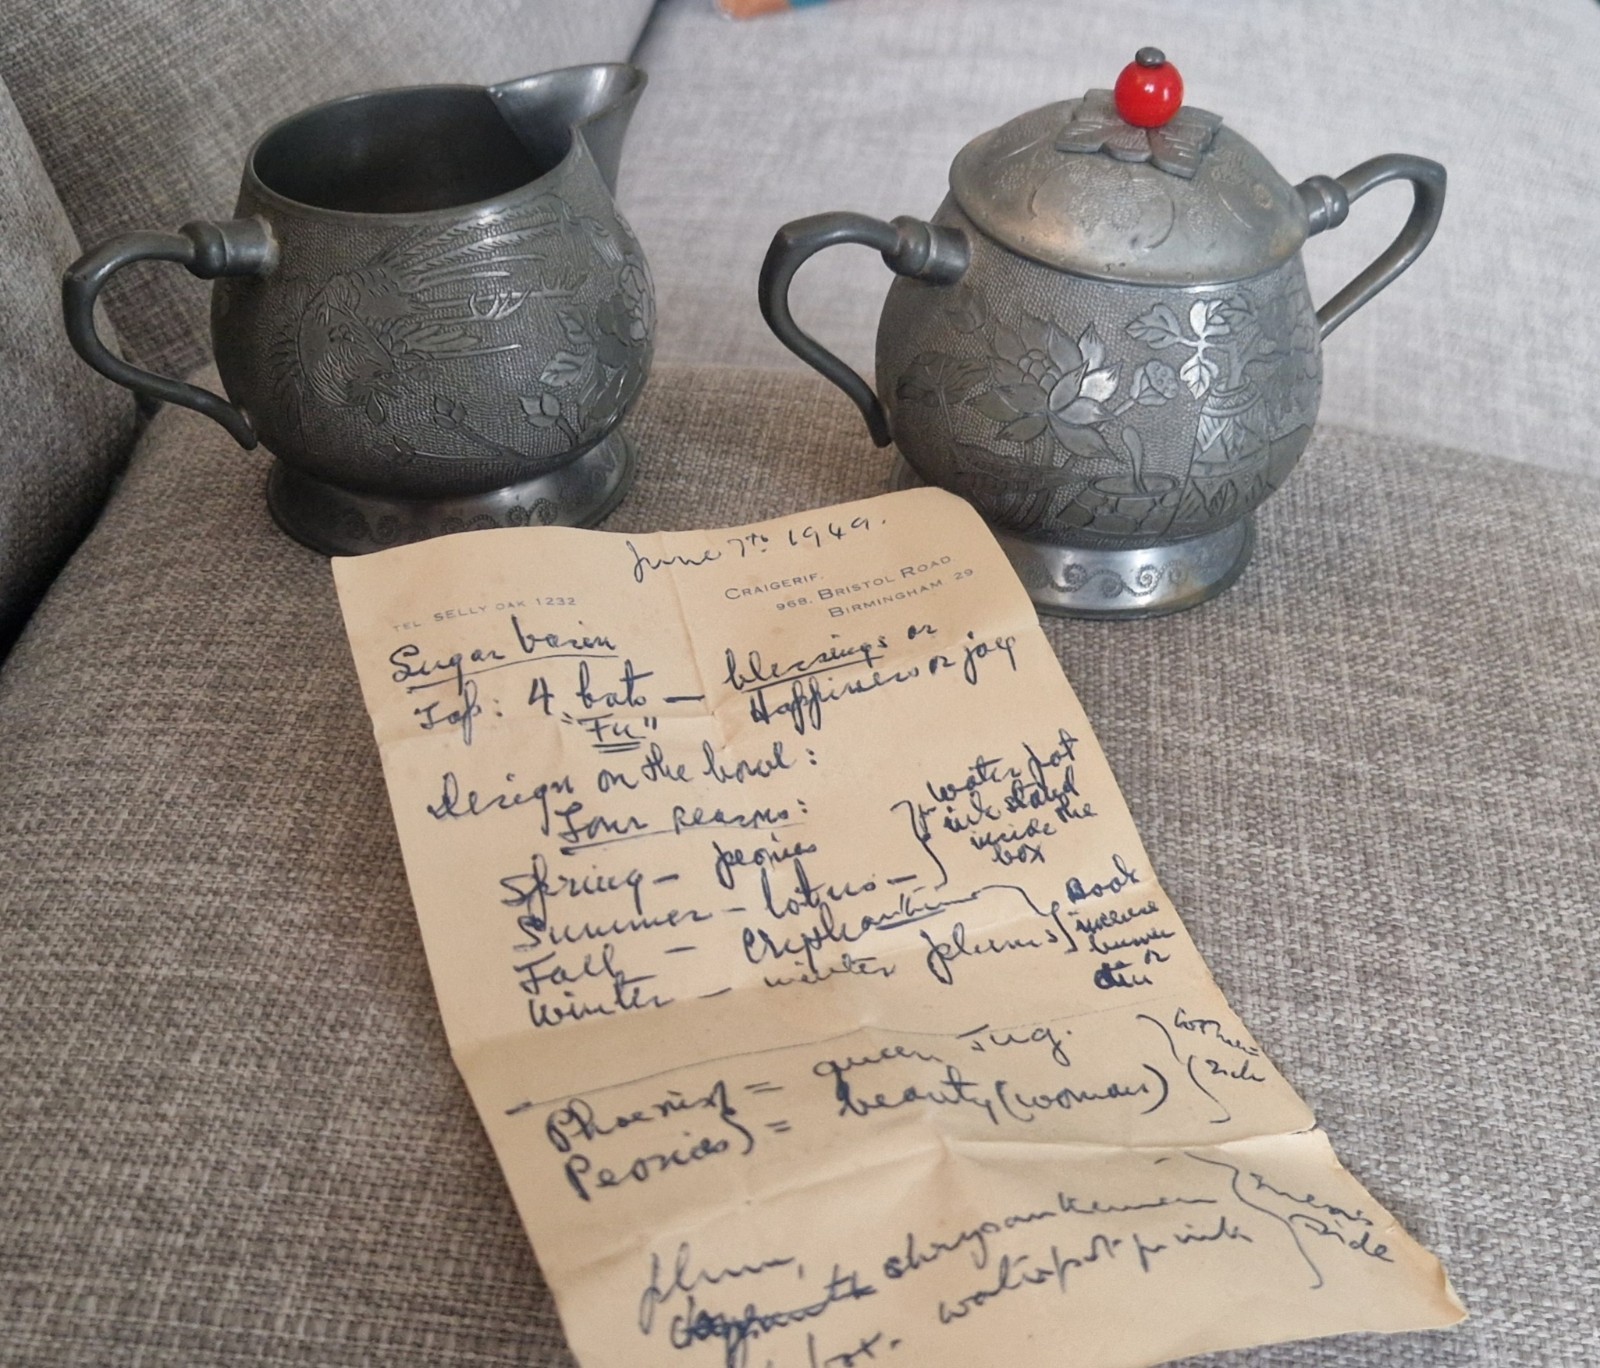 June 7th. 1949.
TEL SELLY OAK 1232
CRAIGERIF.
968. BRISTOL ROAD
BIRMINGHAM 29
Sugar basin
Top: 4 bats — blessings or
"Fu" Happiness or joy
Design on the bowl:
Four seasons:
Spring — peonies
Summer — lotus —
water pot
ink stand
inside the
box
Fall —
Winter — winter plums
Book
incense
burner
or
Jug.
Phoenix = queen
Peonies = beauty (woman)
women
side
plum,
chrysanthemum
box. waterpot
mens
side